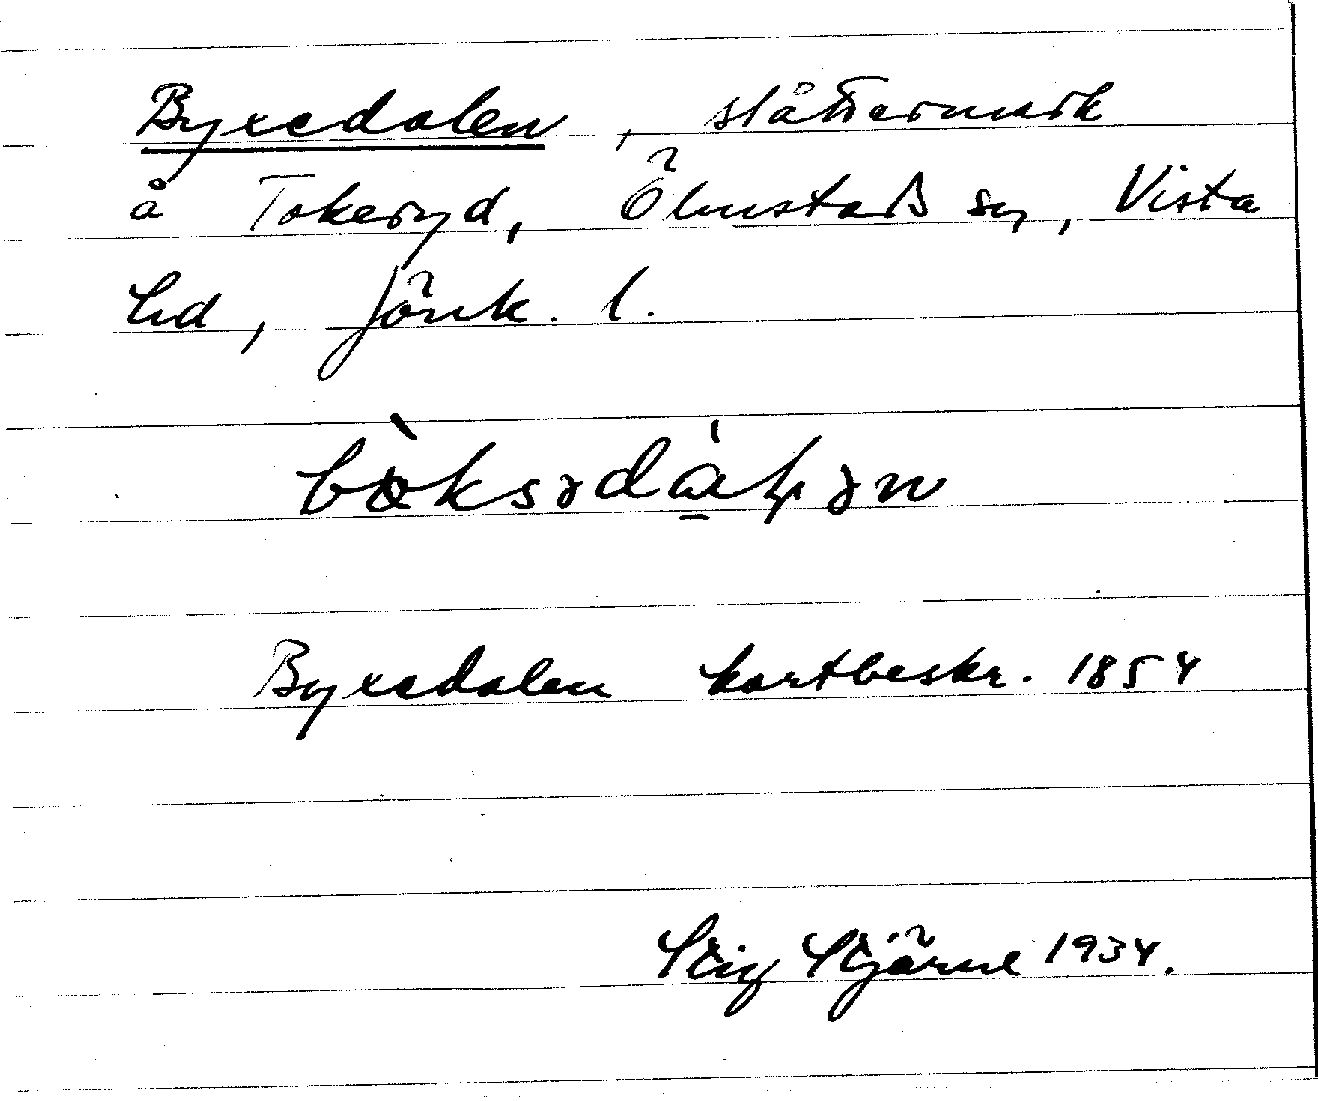 Byxedalen, slåttermark
å Tokeryd, Ölmstads sn, Vista
hd, Jönk. l.
Byxedalen kartbeskr. 1854
Stig Stjärne 1934.